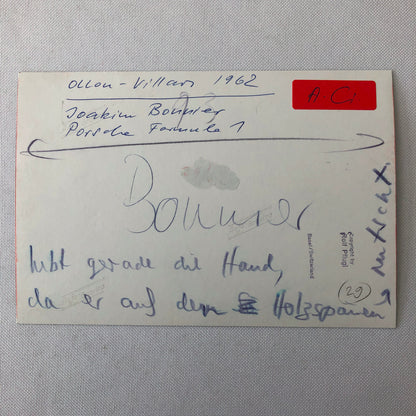 Ollon - Villars 1962
Joakim Bonnier
Porsche Formula 1
A. C.
Bonnier
hebt gerade die Hand,
da er auf dem Holzspanen
rutscht.
Copyright by
Rolf Pflugi
Basel/Switzerland
29